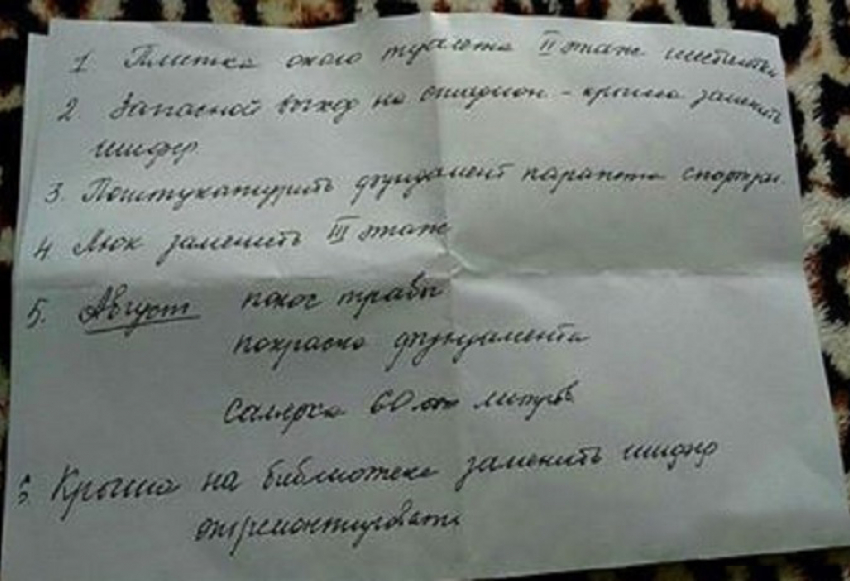 1 Плитка около туалета II этаж
2 Запасной выход на стадион - крыша заменить
шифер.
3. Поштукатурить фундамент парапета спортзал.
4 Люк заменить III этаж
5. Август покос травы
покраска фундамента
Салярка 60 литров
6. Крыша на библиотеке заменить шифер
отремонтировать